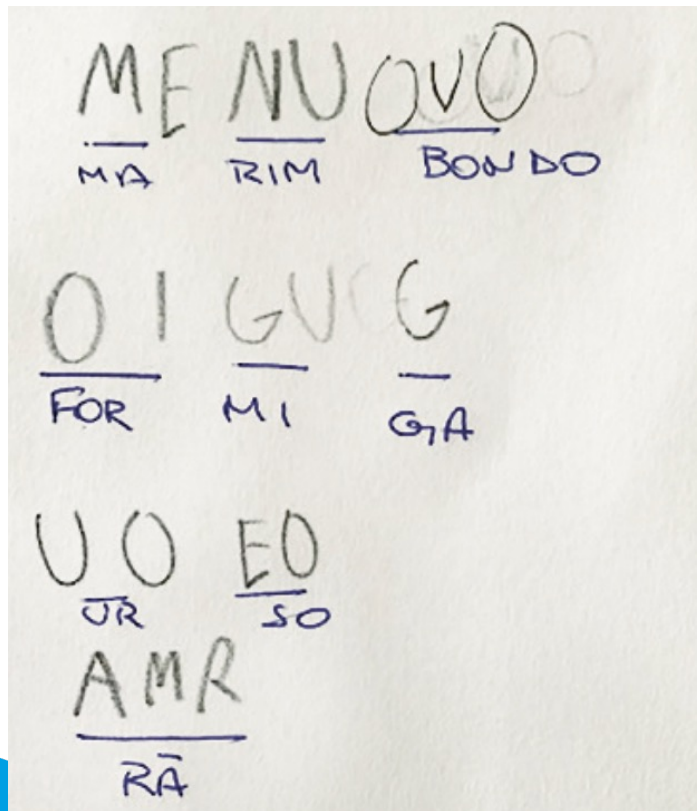 ME NU OVO
MA RIM BONDO
O I GU G
FOR MI GA
UO EO
UR SO
AMR
RÃ